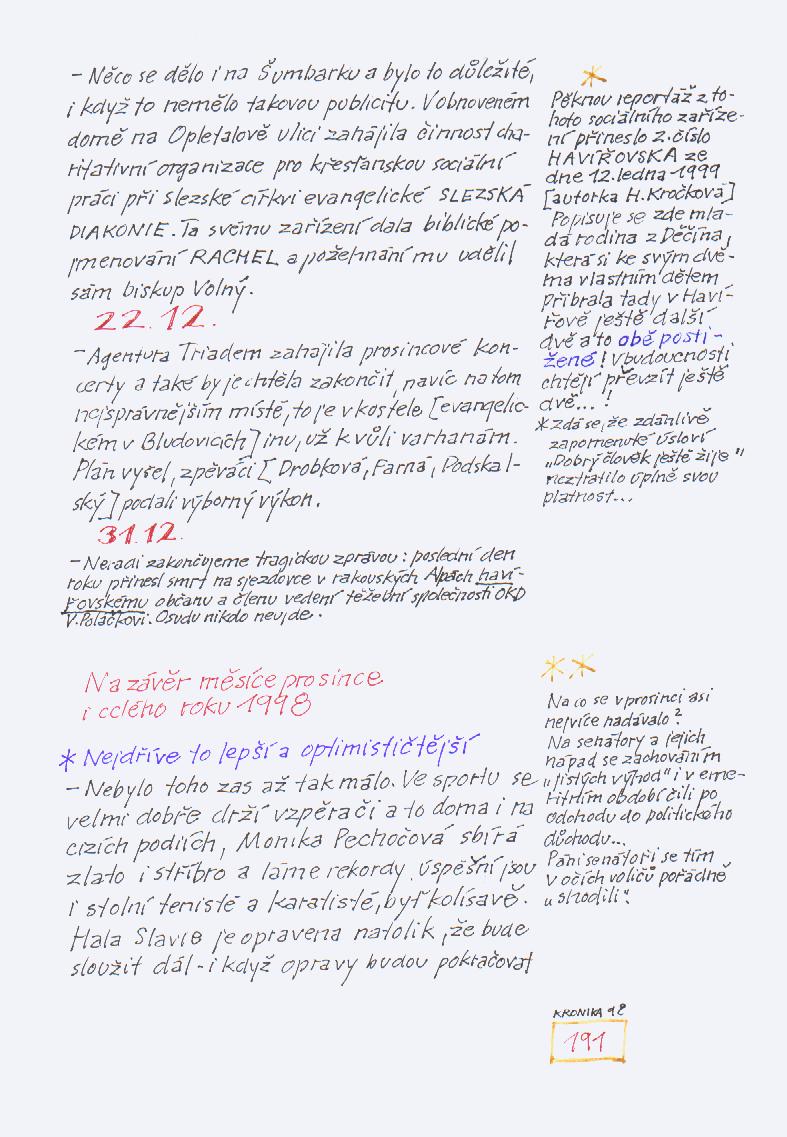 – Něco se dělo i na Šumbarku a bylo to důležité,
i když to nemělo takovou publicitu. V obnoveném
domě na Opletalově ulici zahájila činnost cha-
ritativní organizace pro křesťanskou sociální
práci při slezské církvi evangelické SLEZSKÁ
DIAKONIE. Ta svému zařízení dala biblické po-
jmenování RACHEL a požehnání mu udělil
sám biskup Volný.
22.12.
– Agentura Triadem zahájila prosincové kon-
certy a také by je chtěla zakončit, navíc na tom
nejsprávnějším místě, to je v kostele [evangelic-
kém v Bludovicích] inu, už kvůli varhanám.
Plán vyšel, zpěváci [Drobková, Farná, Podskal-
ský] podali výborný výkon.
31.12.
– Neradi zakončujeme tragickou zprávou: poslední den
roku přinesl smrt na sjezdovce v rakouských Alpách haví-
řovskému občanu a členu vedení těžební společnosti OKD
V. Poláčkovi. Osudu nikdo neujde.
Na závěr měsíce prosince
i celého roku 1998
* Nejdříve to lepší a optimističtější
– Nebylo toho zas až tak málo. Ve sportu se
velmi dobře drží vzpěrači a to doma i na
cizích podiích, Monika Pechočová sbírá
zlato i stříbro a láme rekordy. Úspěšní jsou
i stolní tenisté a karatisté, byť kolísavě.
Hala Slavie je opravena natolik, že bude
sloužit dál - i když opravy budou pokračovat
*
Pěknou reportáž z to-
hoto sociálního zaříze-
ní přineslo 2. číslo
HAVÍŘOVSKA ze
dne 12. ledna 1999
[autorka H. Kročková]
Popisuje se zde mla-
dá rodina z Děčína,
která si ke svým dvě-
ma vlastním dětem
přibrala tady v Haví-
řově ještě další
dvě a to obě posti-
žené! V budoucnosti
chtějí převzít ještě
dvě...!
* Zdá se, že zdánlivě
zapomenuté úsloví
„Dobrý člověk ještě žije"
neztratilo úplně svou
platnost...
* *
Na co se v prosinci asi
nejvíce nadávalo?
Na senátory a jejich
nápad se zachováním
„jistých výhod" i v eme-
ritním období čili po
odchodu do politického
důchodu...
Páni senátoři se tím
v očích voličů pořádně
„shodili".
KRONIKA 98
191